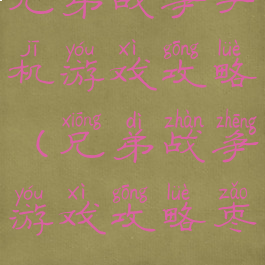 兄弟战争
jī yóu xì gōng lüè
机游戏攻略
xiōng dì zhàn zhēng
（兄弟战争
yóu xì gōng lüè zǎo
游戏攻略枣